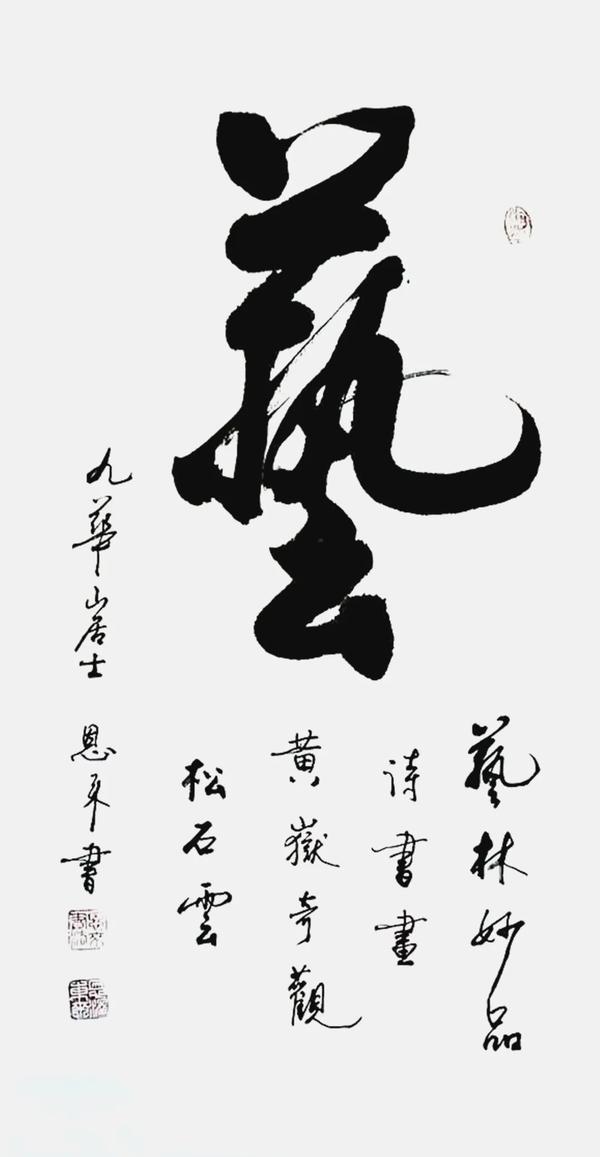 藝
藝林妙品
詩書畫
黄嶽奇觀
松石雲
九華山居士 恩書